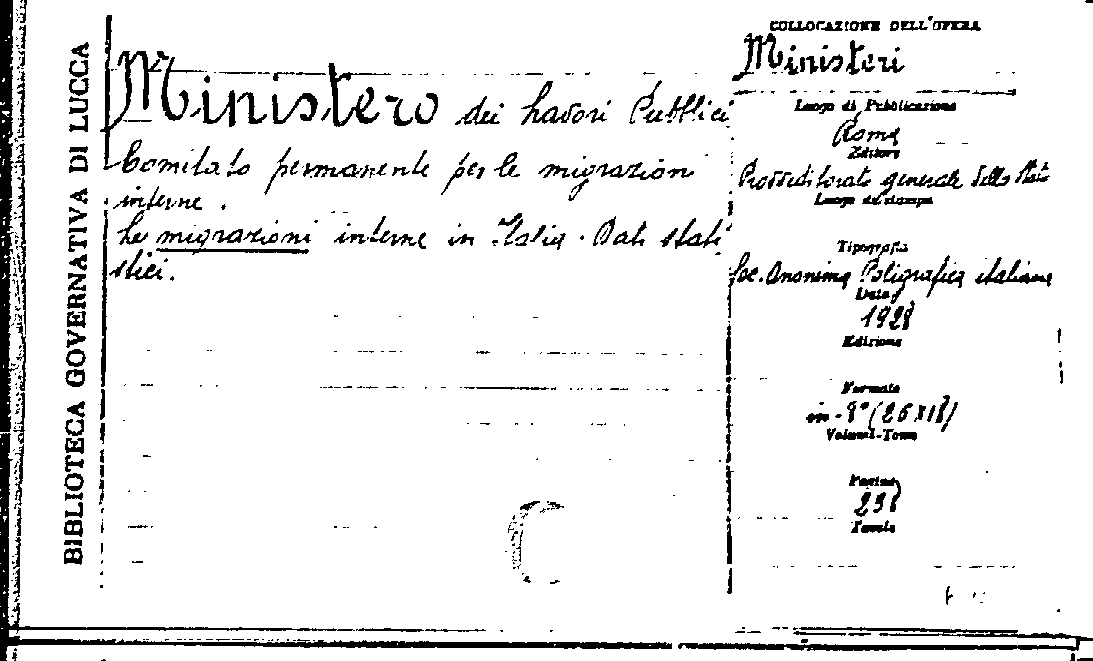 BIBLIOTECA GOVERNATIVA DI LUCCA
Ministero dei Lavori Pubblici
Comitato permanente per le migrazioni
interne.
Le migrazioni interne in Italia. Dati stati
stici.
COLLOCAZIONE DELL'OPERA
Ministeri
Luogo di Pubblicazione
Roma
Editore
Provveditorato generale dello Stato
Luogo di stampa
Tipografia
Soc. Anonima Poligrafica italiana
Data
1928
Edizione
Formato
in-8° (26x18)
Volumi-Tomo
Pagine
238
Tavole